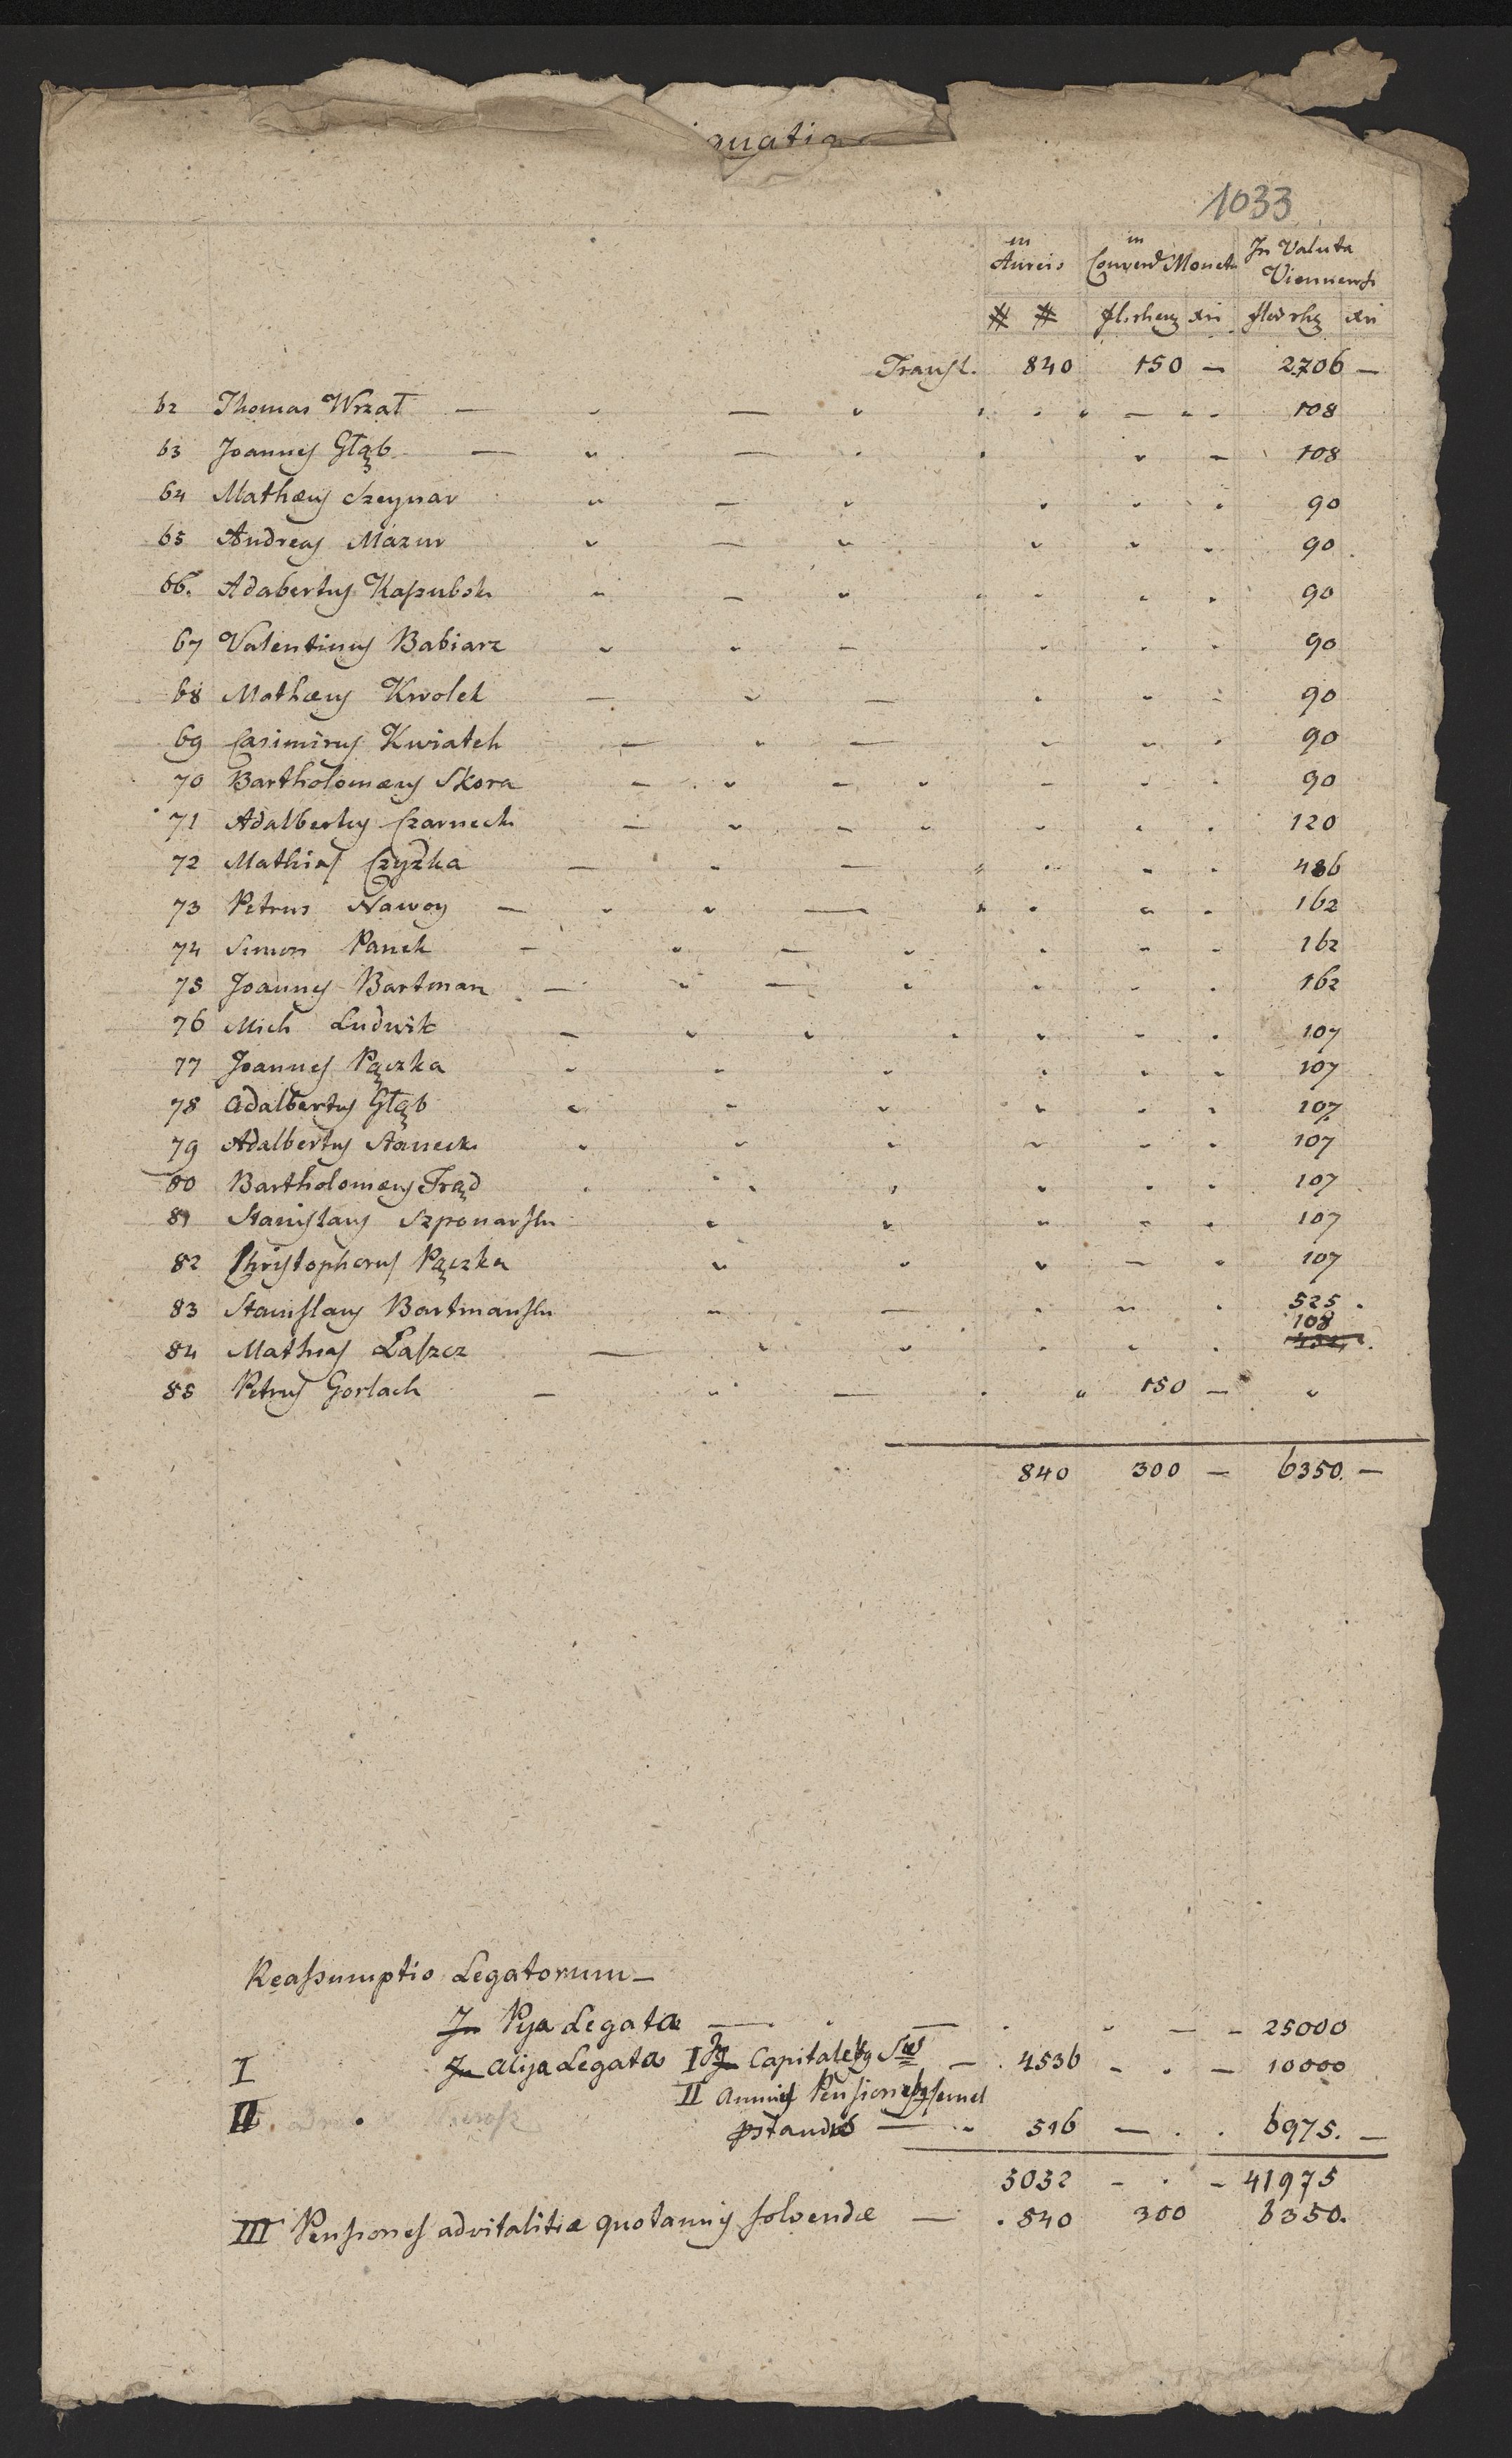 ignatio
1033
in Aureis in Convend Moneta In Valuta Viennensi
# # fl. rhen xri flor rhen xri
Transl. 840 150 — 2706 —
62 Thomas Wrzał — 108
63 Joannes Głąb — 108
64 Mathæus Szeynar 90
65 Andreas Mazur 90
66. Adabertus Kaszubski 90
67 Valentinus Babiarz 90
68 Mathæus Kwolek 90
69 Casimirus Kwiatek 90
70 Bartholomæus Skora 90
71 Adalbertus Czarnecki 120
72 Mathias Czyżka 486
73 Petrus Nawoy — 162
74 Simon Panek 162
75 Joannes Bartman 162
76 Mich Ludwik 107
77 Joannes Pączka 107
78 Adalbertus Głąb 107
79 Adalbertus Stanecki 107
80 Bartholomæus Trąd 107
81 Stanislaus Szponarski 107
82 Christophorus Pączka 107
83 Stanislaus Bartmanski 525
84 Mathias Łaszcz 108
85 Petrus Gorlach — 150 —
840 300 — 6350. —
Reassumptio Legatorum —
In Pya Legata — 25000
I In Alija Legata I In Capitalibus — 4536 — 10000
II Annuis Pensionibus semel
II. pstandis — 516 — 6975. —
5032 — 41975
III Pensiones advitalitiæ quotannis solvendæ — 840 300 6350.